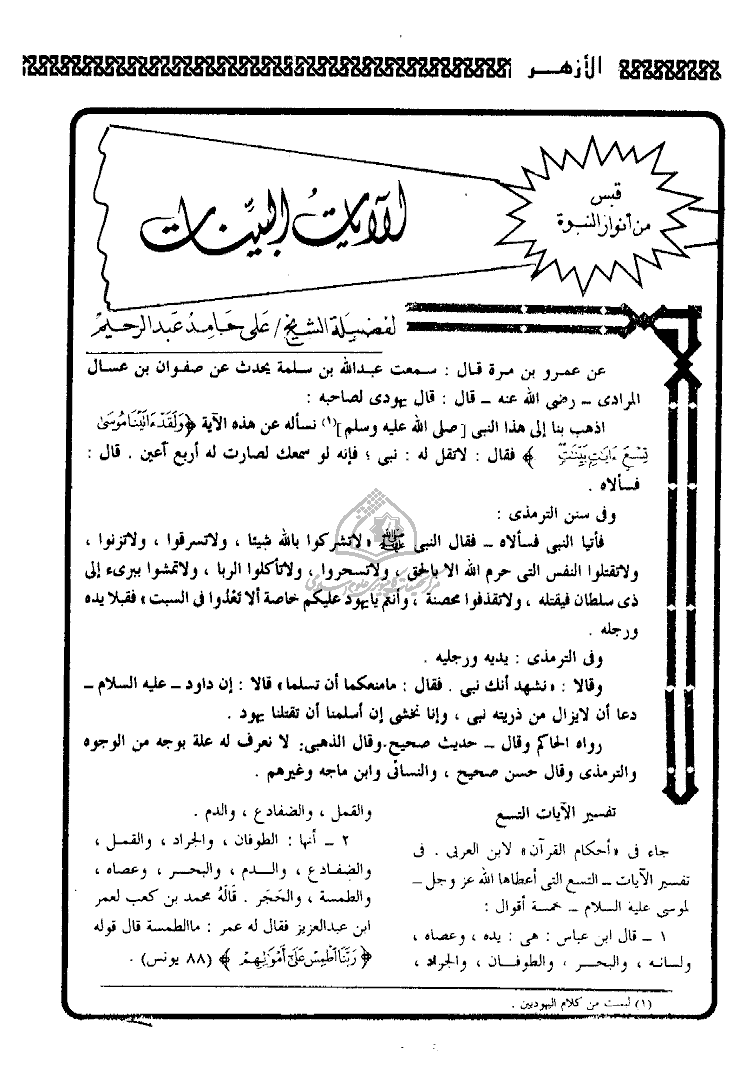 الأزهر
قبس
من أنوار النبوة
الآيات البينات
لفضيلة الشيخ / على حامد عبد الرحيم
عن عمرو بن مرة قال : سمعت عبدالله بن سلمة يحدث عن صفوان بن عسال
المرادى ــ رضى الله عنه ــ قال : قال يهودى لصاحبه :
اذهب بنا إلى هذا النبى [ صلى الله عليه وسلم ](١) نسأله عن هذه الآية ﴿ وَلَقَدْ ءَاتَيْنَا مُوسَىٰ
تِسْعَ ءَايَٰتٍ بَيِّنَٰتٍ ﴾ فقال : لاتقل له : نبى ؛ فإنه لو سمعك لصارت له أربع أعين . قال :
فسألاه .
وفى سنن الترمذى :
فأتيا النبى فسألاه ــ فقال النبى ﷺ « لاتشركوا بالله شيئا ، ولاتسرقوا ، ولاتزنوا ،
ولاتقتلوا النفس التى حرم الله الا بالحق ، ولاتسحروا ، ولاتأكلوا الربا ، ولاتمشوا ببرىء إلى
ذى سلطان فيقتله ، ولاتقذفوا محصنة ، وأنتم يايهود عليكم خاصة ألا تعْدُوا فى السبت » فقبلا يده
ورجله .
وفى الترمذى : يديه ورجليه .
وقالا : « نشهد أنك نبى . فقال : مامنعكما أن تسلما » قالا : إن داود ــ عليه السلام ــ
دعا أن لايزال من ذريته نبى ، وإنا نخشى إن أسلمنا أن تقتلنا يهود .
رواه الحاكم وقال ــ حديث صحيح . وقال الذهبى : لا نعرف له علة بوجه من الوجوه
والترمذى وقال حسن صحيح ، والنسائى وابن ماجه وغيرهم .
تفسير الآيات التسع
جاء فى « أحكام القرآن » لابن العربى . فى
تفسير الآيات ــ التسع التى أعطاها الله عز وجل ــ
لموسى عليه السلام ــ خمسة أقوال :
١ ــ قال ابن عباس : هى : يده ، وعصاه ،
ولسانه ، والبحر ، والطوفان ، والجراد ،
والقمل ، والضفادع ، والدم .
٢ ــ أنها : الطوفان ، والجراد ، والقمل ،
والضفادع ، والدم ، والبحر ، وعصاه ،
والطمسة ، والحَجَر . قَالَهُ محمد بن كعب لعمر
ابن عبدالعزيز فقال له عمر : ماالطمسة قال قوله
﴿ رَبَّنَا اطْمِسْ عَلَىٰ أَمْوَالِهِمْ ﴾ (٨٨ يونس) .
(١) ليست من كلام اليهوديين .